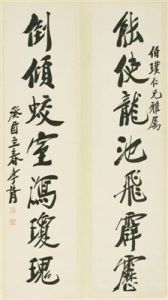 能使龍池飛霹靂
伯璞仁兄雅屬
倒傾蛟室瀉瓊瑰
癸酉立春李菁